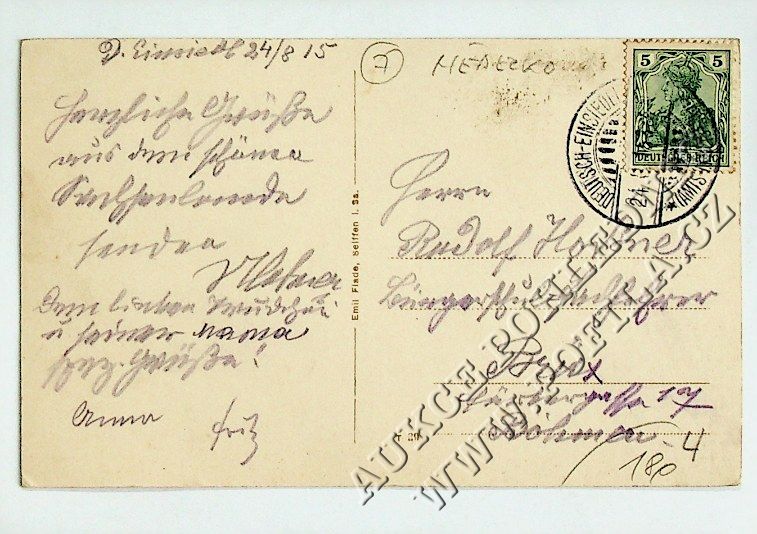 D. Einsiedl 24/8 15
7
Herzliche Grüße
aus dem schönen
Sachsenlande
senden
Dem lieben
u seiner Mama
spez. Grüße!
Anna
Fritz
Emil Flade, Seiffen i. Sa.
5 5
DEUTSCHES REICH
DEUTSCH-EINSIEDEL
24.8.
Herrn
Rudolf
Bürgerschulfachlehrer
Brüx
17
Böhmen
180
4
AUKCE POHLEDNIC
WWW.POHLEDNICE.CZ